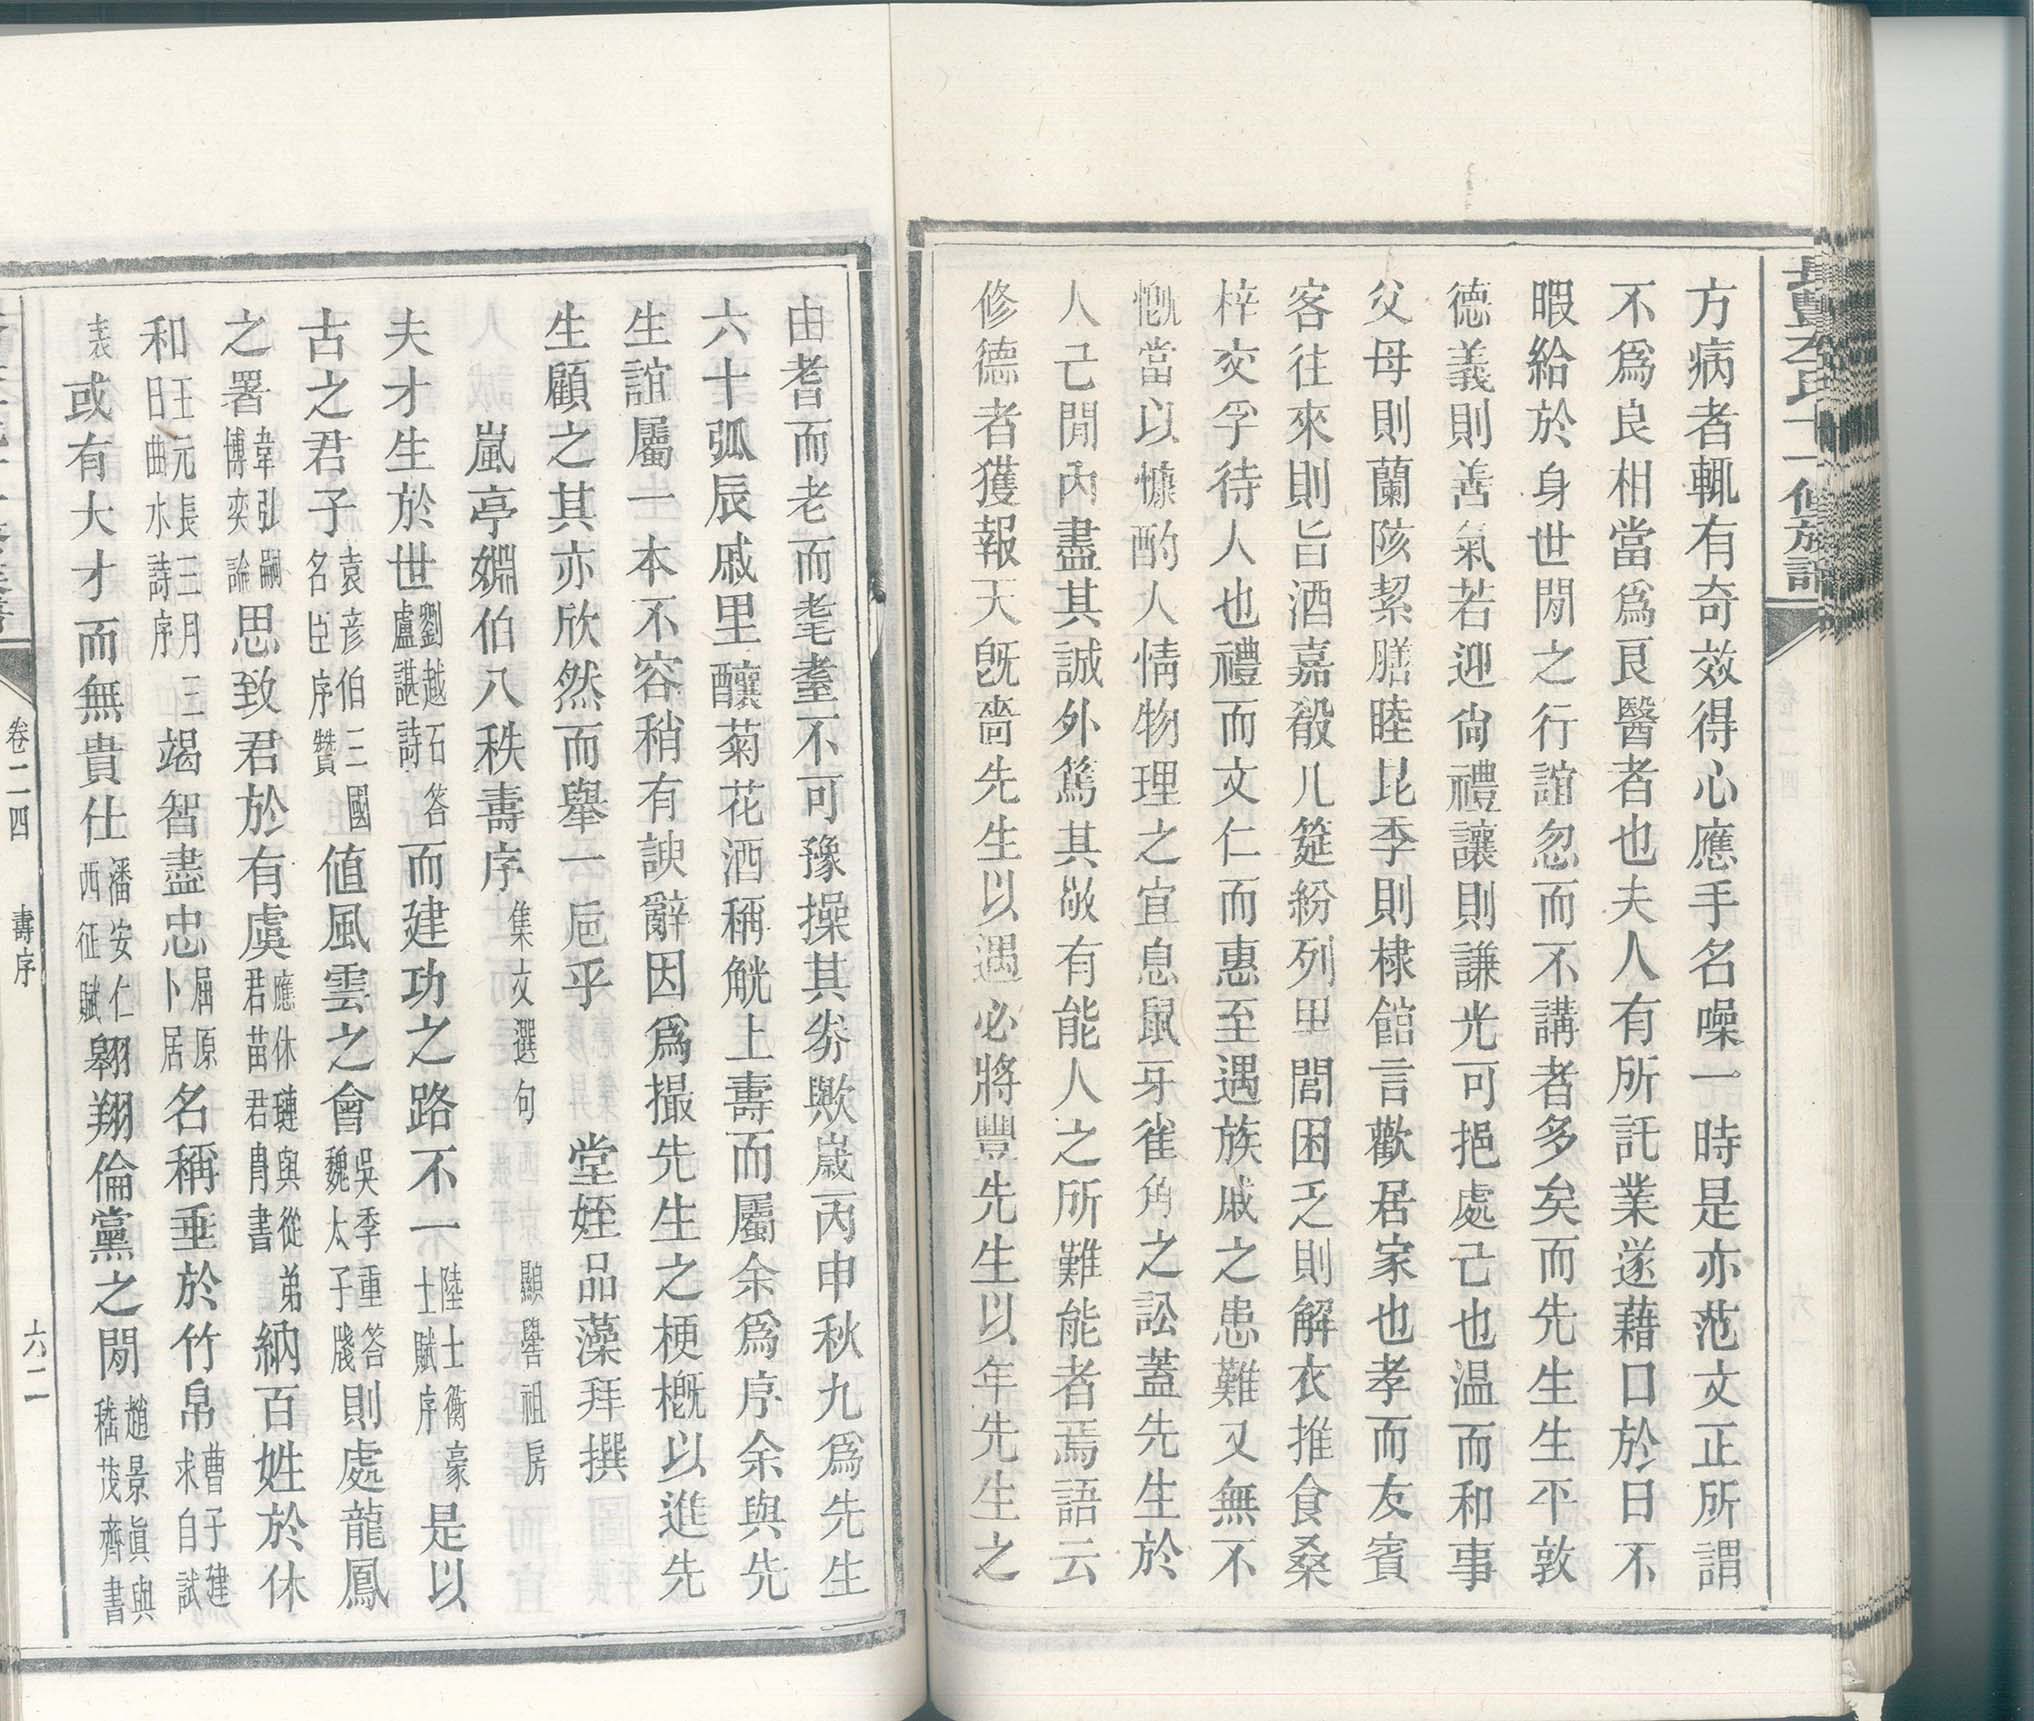 方病者輒有奇效得心應手名噪一時是亦范文正所謂
不爲良相當爲良醫者也夫人有所託業遂藉口於日不
暇給於身世閒之行誼忽而不講者多矣而先生生平敦
德義則善氣若迎尙禮讓則謙光可挹處己也温而和事
父母則蘭陔絜膳睦昆季則棣館言歡居家也孝而友賓
客往來則旨酒嘉殽几筵紛列里閭困乏則解衣推食桑
梓交孚待人也禮而文仁而惠至遇族戚之患難又無不
慨當以慷酌人情物理之宜息鼠牙雀角之訟蓋先生於
人己閒內盡其誠外篤其敬有能人之所難能者焉語云
修德者獲報天旣嗇先生以遇必將豐先生以年先生之
由耆而老而耄耋不可豫操其券歟歲丙申秋九爲先生
六十弧辰戚里釀菊花酒稱觥上壽而屬余爲序余與先
生誼屬一本不容稍有諛辭因爲撮先生之梗槪以進先
生顧之其亦欣然而舉一巵乎　堂姪品藻拜撰
嵐亭嫺伯八秩壽序 集文選句　顯譽祖房
夫才生於世 劉越石答盧諶詩 而建功之路不一 陸士衡豪士賦序 是以
古之君子 袁彥伯三國名臣序贊 値風雲之會 吳季重答魏太子牋 則處龍鳳
之署 韋弘嗣博奕論 思致君於有虞 應休璉與從弟君苗君冑書 納百姓於休
和 王元長三月三日曲水詩序 竭智盡忠 屈原卜居 名稱垂於竹帛 曹子建求自試
表 或有大才而無貴仕 潘安仁西征賦 翱翔倫黨之閒 趙景眞與嵇茂齊書
卷二四　壽序　六二